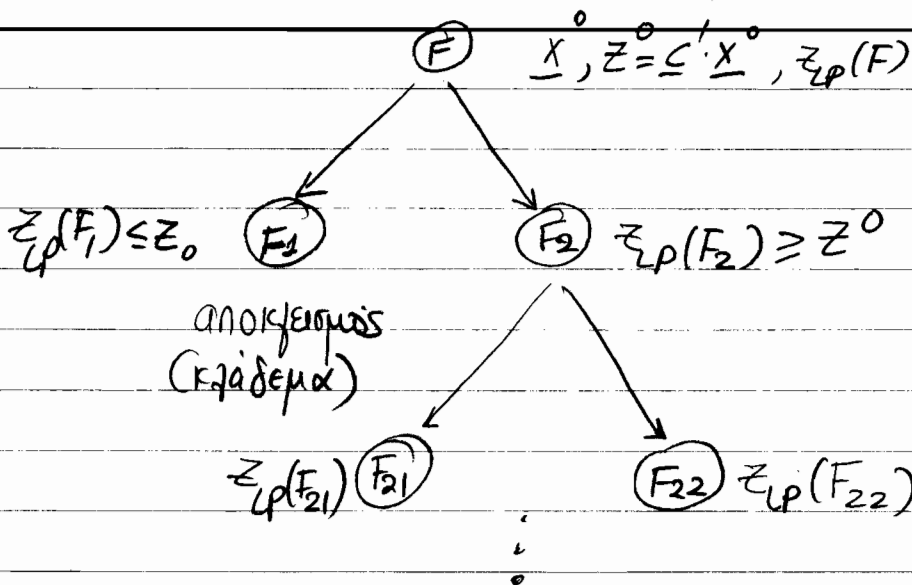 F x⁰, z⁰ = c'·x⁰, z_LP(F)
z_LP(F₁) ≤ z₀ F₁ F₂ z_LP(F₂) ≥ z⁰
αποκλεισμός
(κλάδεμα)
z_LP(F₂₁) F₂₁ F₂₂ z_LP(F₂₂)